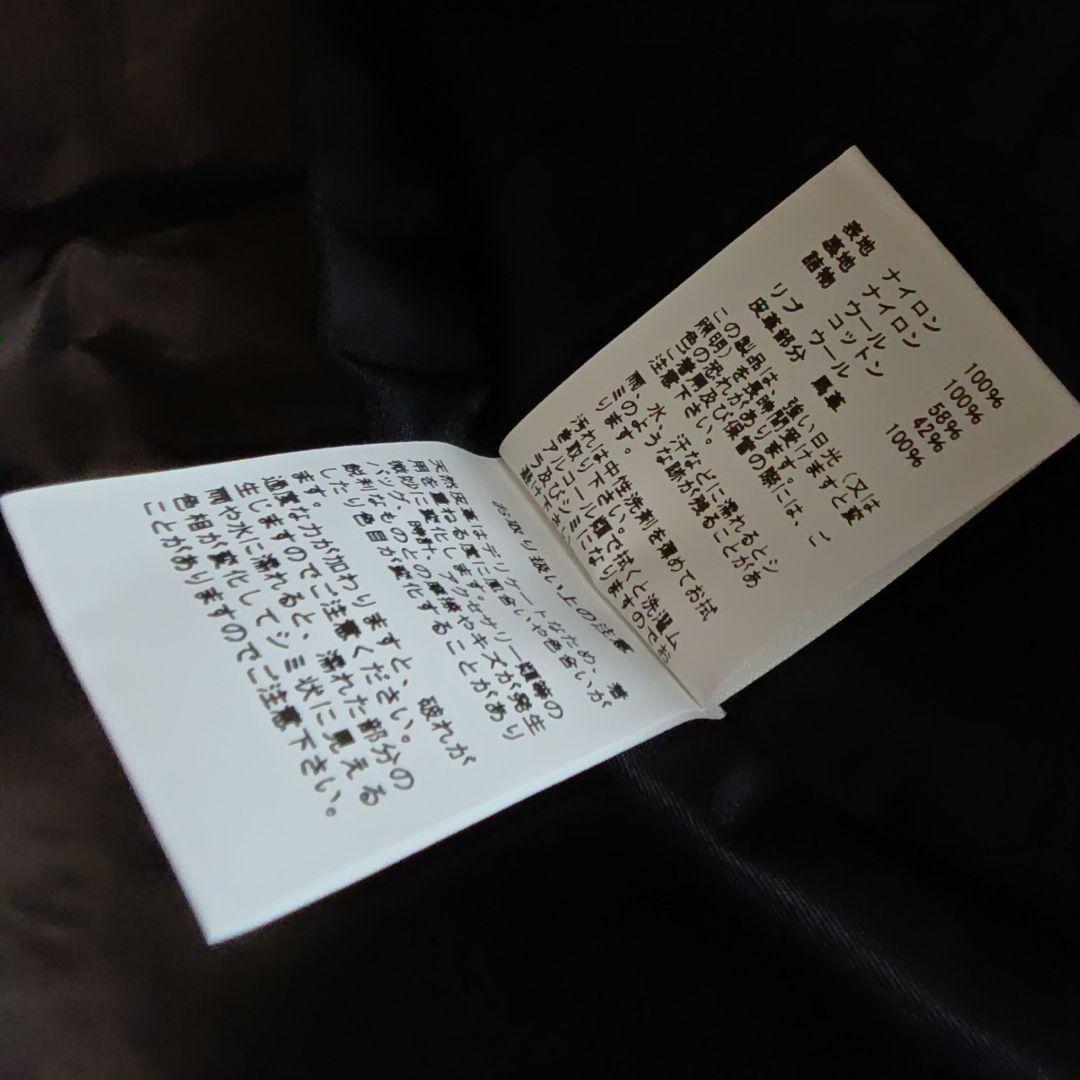 表地 ナイロン 100%
裏地 ナイロン 100%
詰物 ウール 58%
コットン 42%
リブ ウール 100%
皮革部分 馬革
この製品は、強い日光（又は
照明）を長時間受けますと変
色の恐れがあります。
ご着用及び保管の際には、ご
注意下さい。
雨、水、汗などに濡れるとシ
ミのような跡が残ることがあ
ります。
汚れは中性洗剤を薄めてお試
き取り下さい。
アルコール類で拭くと洗濯ム
ラ及びシミになりますのでお
下さい
お取り扱い上の注意
天然皮革はデリケートなため、着
用を重ねる度に風合いや色合いが
微妙に変化します。
バッグ、時計、アクセサリー類等の
鋭利なものとの摩擦やキズが発生
したり色目が変化することがあり
ます。
過度な力が加わりますと、破れが
生じますのでご注意ください。
雨や水に濡れると、濡れた部分の
色相が変化してシミ状に見える
ことがありますのでご注意下さい。